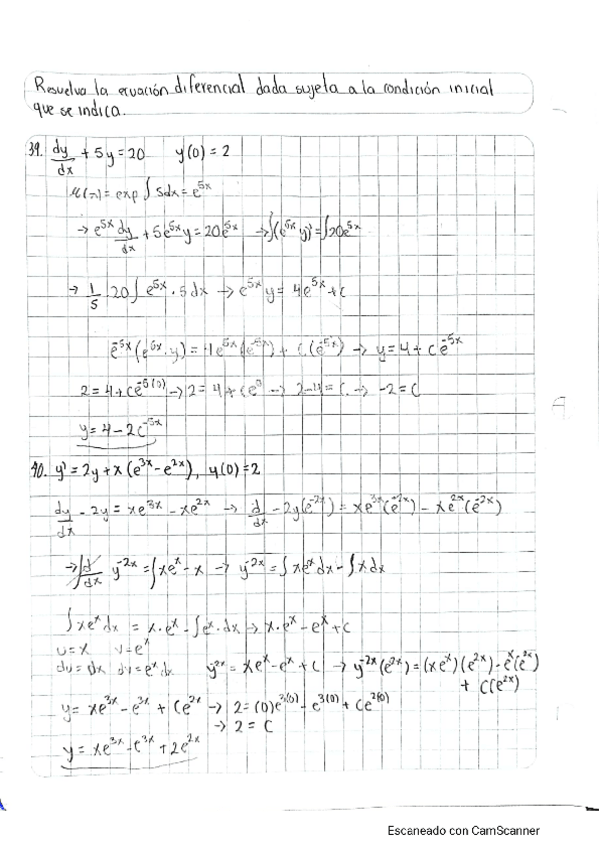 Resuelva la ecuación diferencial dada sujeta a la condición inicial
que se indica.
39. dy/dx + 5y = 20 y(0) = 2
μ(x) = exp ∫ 5dx = e^5x
→ e^5x dy/dx + 5e^5x y = 20e^5x → ∫(e^5x y)' = ∫20e^5x
→ 1/5 20 ∫ e^5x · 5 dx → e^5x y = 4e^5x + C
e^-5x (e^5x · y) = 4e^5x (e^-5x) + C(e^-5x) → y = 4 + Ce^-5x
2 = 4 + Ce^-5(0) → 2 = 4 + Ce^0 → 2-4 = C → -2 = C
y = 4 - 2e^-5x
40. y' = 2y + x(e^3x - e^2x), y(0) = 2
dy/dx - 2y = xe^3x - xe^2x → d/dx - 2y(e^-2x) = xe^3x(e^-2x) - xe^2x(e^-2x)
→ ∫ d/dx y^-2x = ∫xe^x - x → y^-2x = ∫xe^x dx - ∫x dx
∫xe^x dx = x·e^x - ∫e^x·dx → x·e^x - e^x + C
u = x v = e^x
du = dx dv = e^x dx y^-2x = xe^x - e^x + C → y^-2x(e^2x) = (xe^x)(e^2x) - e^x(e^2x)
+ C(e^2x)
y = xe^3x - e^3x + Ce^2x → 2 = (0)e^3(0) - e^3(0) + Ce^2(0)
→ 2 = C
y = xe^3x - e^3x + 2e^2x
Escaneado con CamScanner